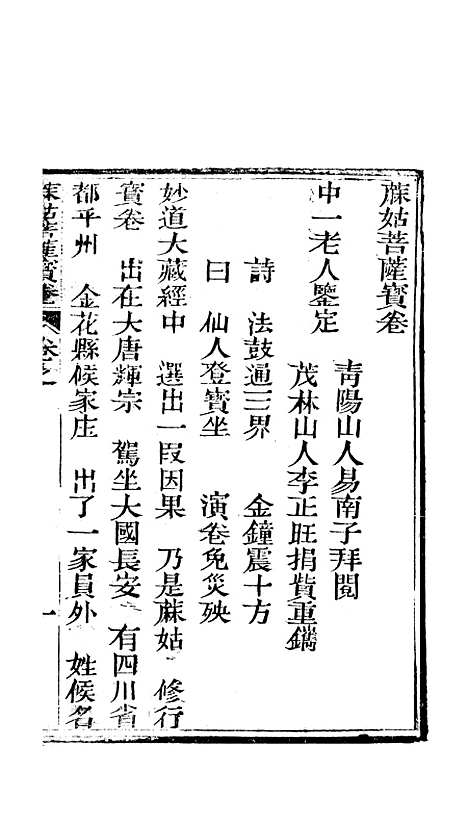 蔴姑菩薩寳卷
青陽山人易南子拜閱
中一老人鑒定
茂林山人李正旺捐貲重鐫
詩　法鼓通三界　金鐘震十方
曰　仙人登寳坐　演卷免災殃
妙道大藏經中　選出一段因果　乃是蔴姑　修行
寳卷　出在大唐輝宗　駕坐大國長安　有四川省
都平州　金花縣候家庄　出了一家員外　姓候名
蔴姑菩薩寳卷　卷之一　一